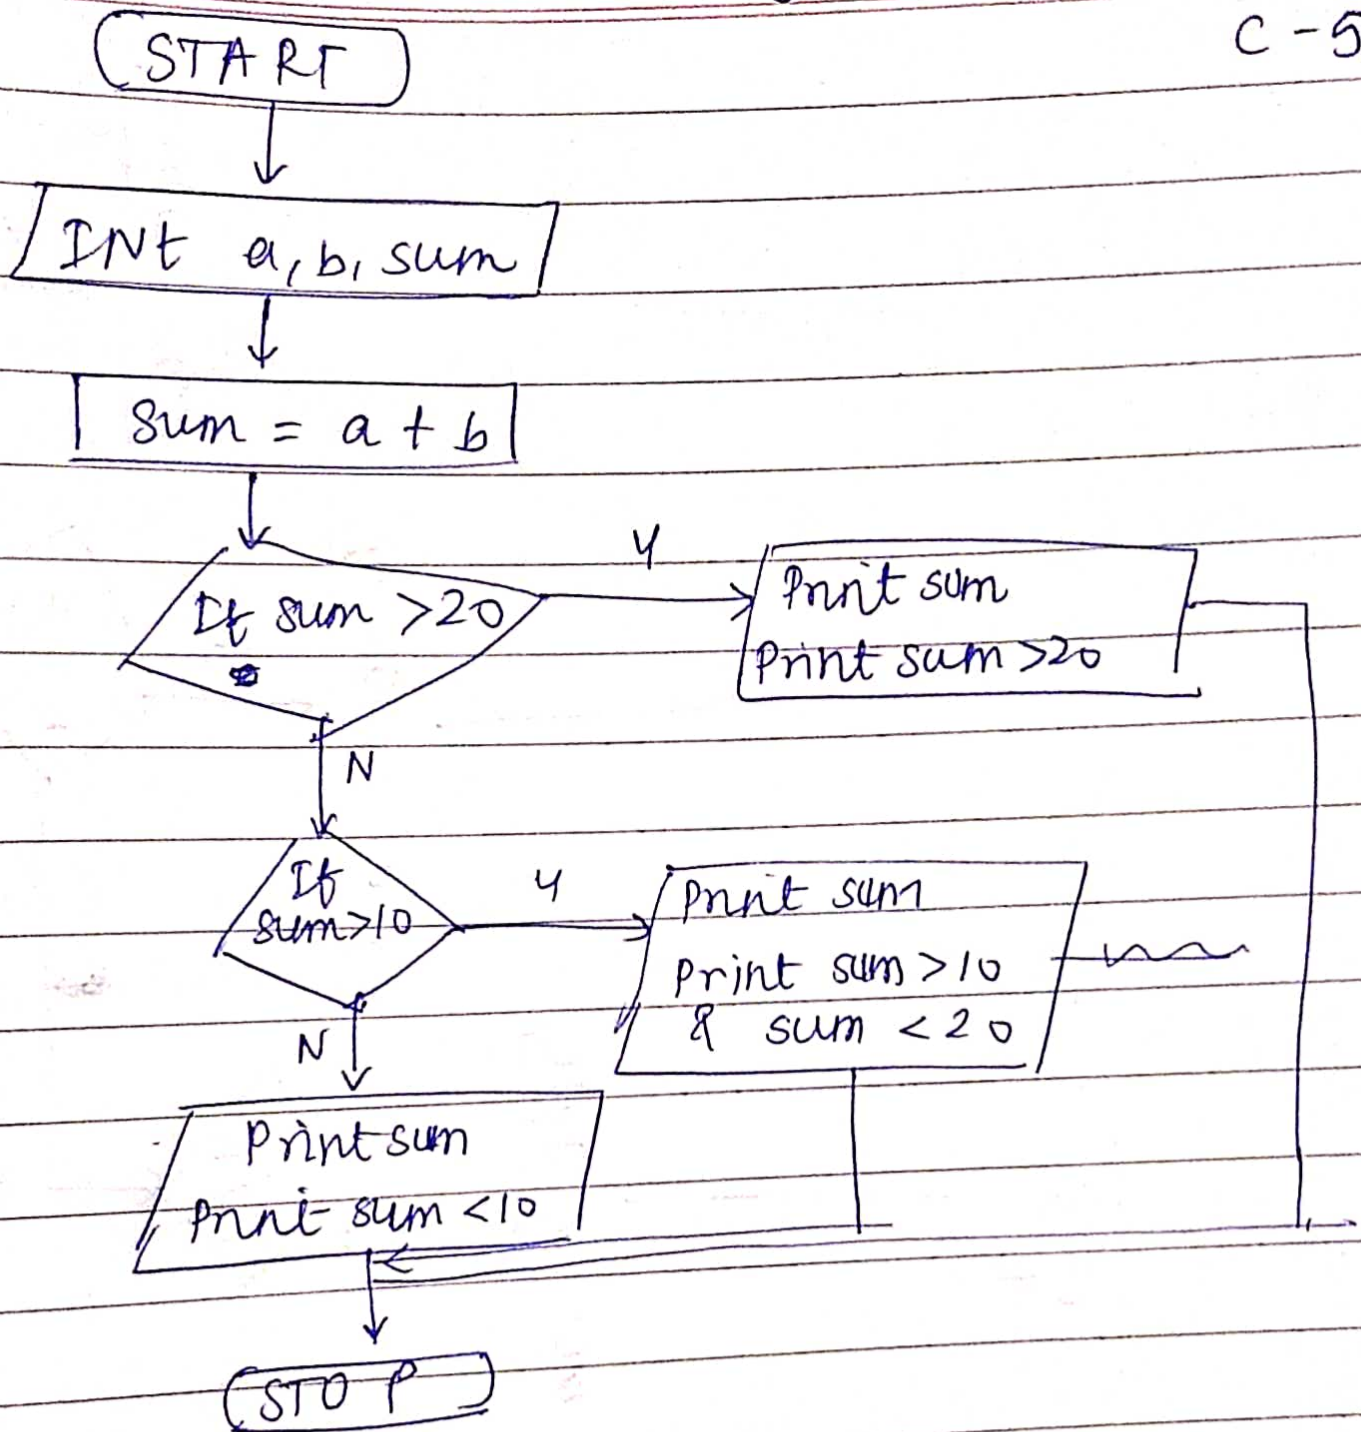 C-5
START
INt a, b, sum
Sum = a + b
If sum >20
Y
Print sum
Print sum >20
N
If
sum>10
Y
Print sum
Print sum >10
& sum <20
N
Print sum
Print sum <10
STOP